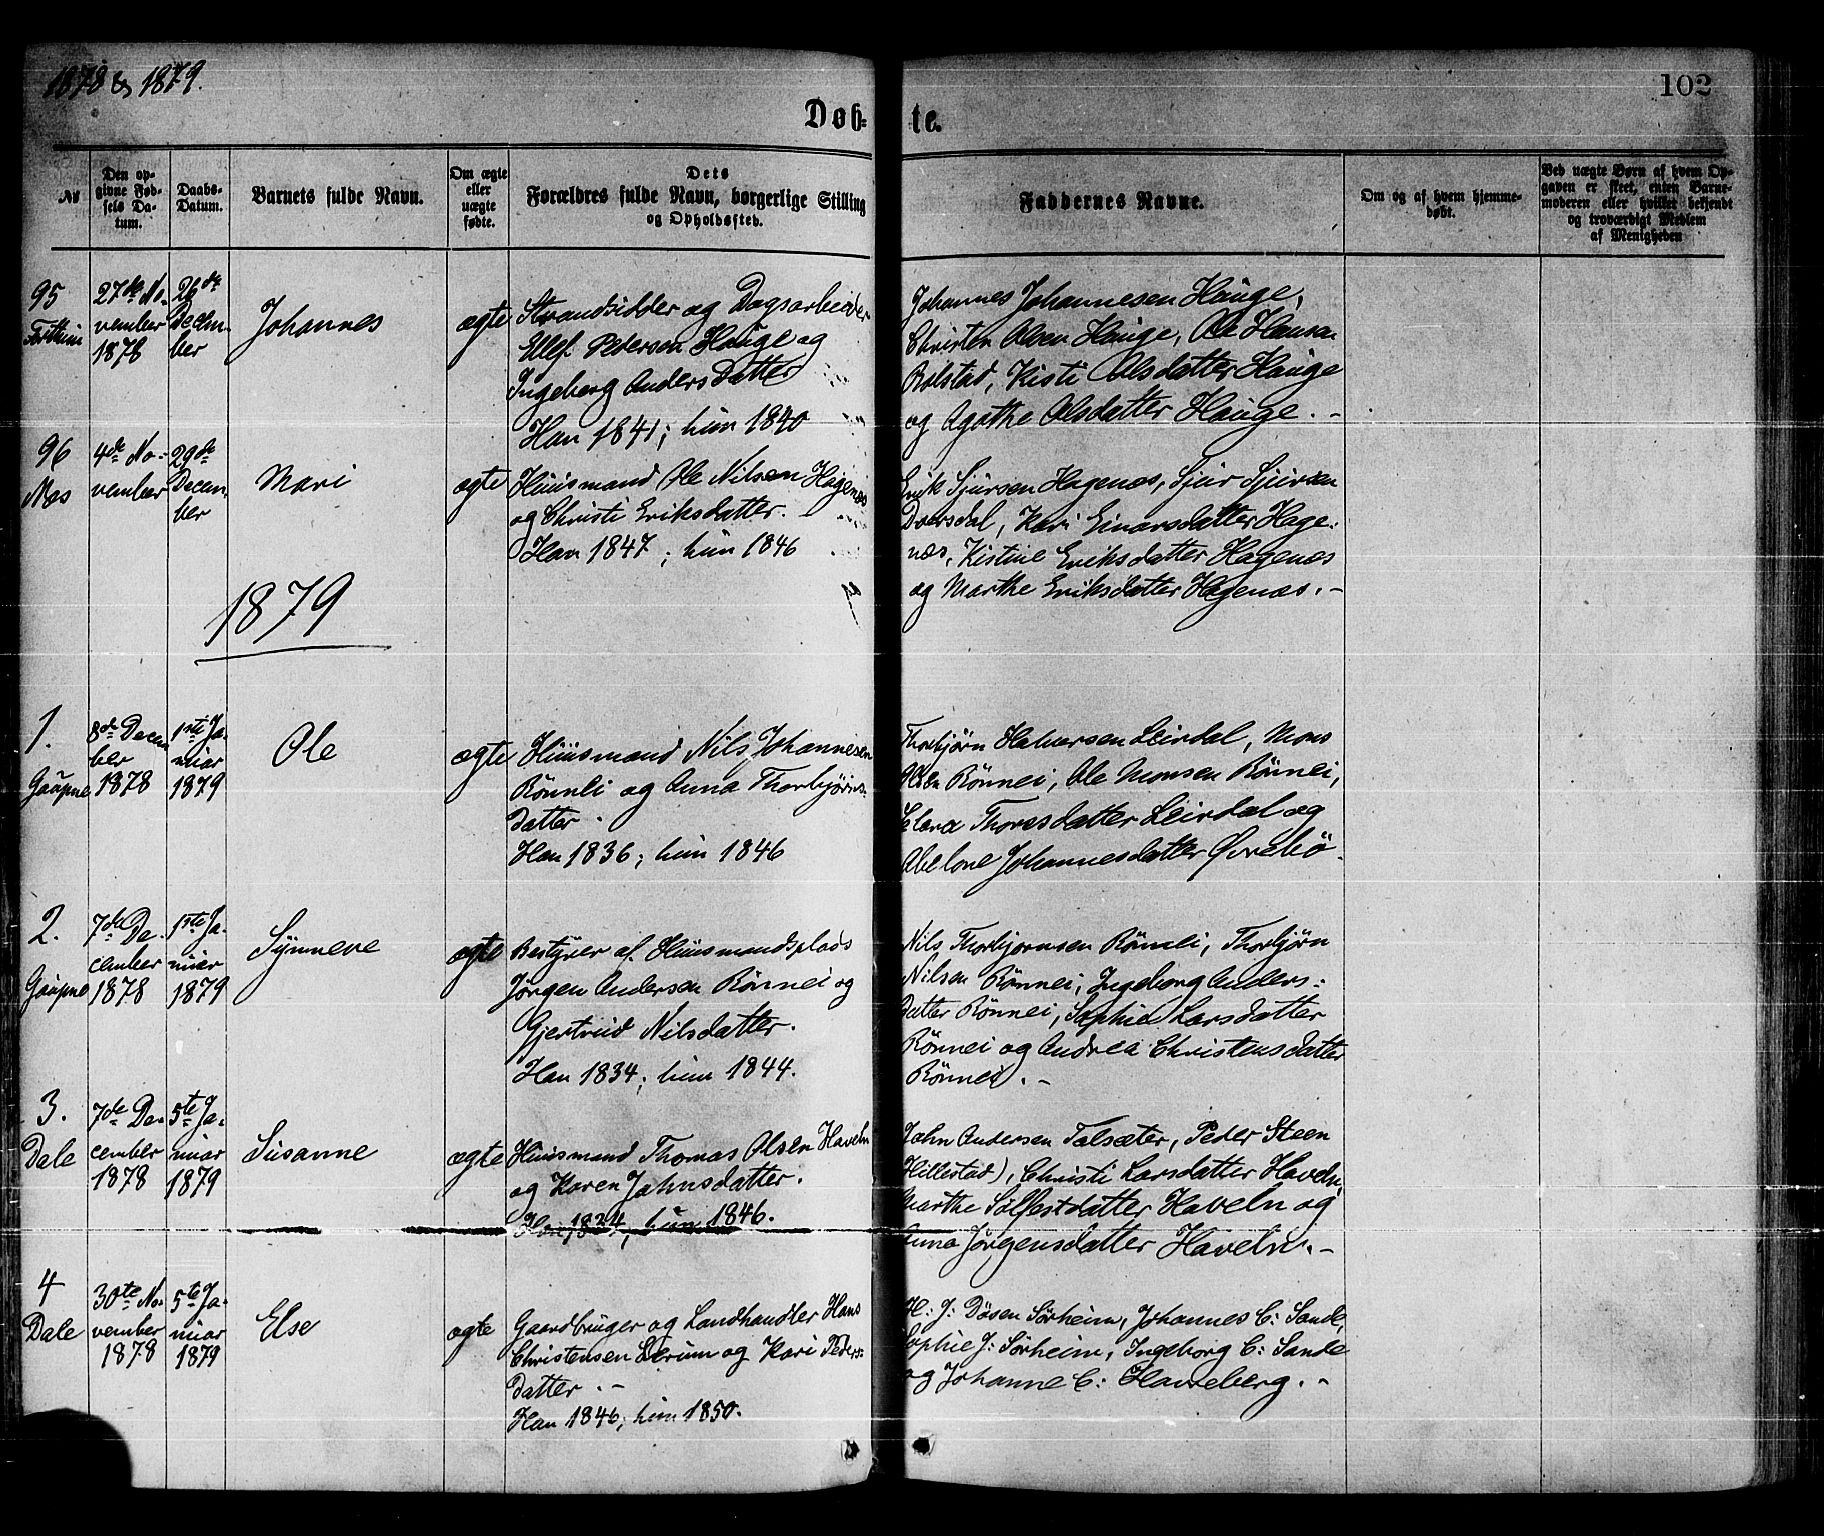 1878 & 1879.
102
Døb-
te.
No
Den op-
givne Fød-
sels Da-
tum.
Daabs-
Datum.
Barnets fulde Navn.
Om ægte
eller
uægte
fødte.
Dets
Forældres fulde Navn, borgerlige Stilling
og Opholdssted.
Faddernes Navne.
Om og af hvem hjemme-
døbt.
Ved uægte Børn af hvem Op-
gaven er skeet, enten Barne-
moderen eller hvilket bekjendt
og troværdigt Medlem
af Menigheden
95
27de No-
vember
1878
26de
Decem-
ber
Johannes
ægte
Strandsidder og Dagsarbeider
Ellef Pedersen Hauge og
Ingeborg Anders Datter
Han 1841; hun 1840
Johannes Johannesen Hauge,
Christen Olsen Hauge, Ole Hansen
Bolstad, Kisti Olsdatter Hauge
og Agathe Olsdatter Hauge. -
96
Næs
4de No-
vember
29de
Decem-
ber
Mari
ægte
Huusmand Ole Nilsen Hagenæs
og Christi Eriksdatter.
Han 1847; hun 1846
Erik Sjursen Hagenæs, Sjur Sjursen
Dversdal, Kari Einarsdatter Hage-
næs, Kistine Eriksdatter Hagenæs
og Marthe Eriksdatter Hagenæs. -
1879
1.
Gaupne
8de Decem
ber
1878
1ste Ja-
nuar
1879
Ole
ægte
Huusmand Nils Johannesen
Rönnei og Anna Thorbjørns-
datter.
Han 1836; hun 1846
Thorbjørn Halvorsen Leirdal, Mons
Olsen Rönnei, Ole Monsen Rönnei,
Thoresdatter Leirdal og
Abelone Johannesdatter Øvrebö.
2.
Gaupne
7de De-
cember
1878
1ste Ja-
nuar
1879
Synneve
ægte
Bestyrer af Huusmandsplads
Jørgen Andersen Rönnei og
Gjertrud Nilsdatter.
Han 1834; hun 1844.
Nils Thorbjørnsen Rönnei, Thorbjørn
Nilsen Rönnei, Ingeborg Anders-
datter Rönnei, Sophie Larsdatter
Rönnei og Andrea Christensdatter
Rönnei. -
3.
Dale
7de De-
cember
1878
5te Ja-
nuar
1879
Susanne
ægte
Huusmand Thomas Olsen Haveln
og Karen Johnsdatter.
Han 1824; hun 1846.
John Andersen Talsæter, Peder Steen
Hillestad), Christi Larsdatter Haveln,
Marthe Solfestdatter Haveln og
Anna Jörgensdatter Haveln. -
4
Dale
30te No-
vember
1878
5te Ja-
nuar
1879
Else
ægte
Gaardbruger og Landhandler Hans
Christensen Lerum og Kari Peders-
datter. -
Han 1846; hun 1850.
H: J: Døsen Sørheim, Johannes C: Sande,
Sophie J: Sørheim, Ingeborg C: Sande
og Johanne C: Haveberg. -